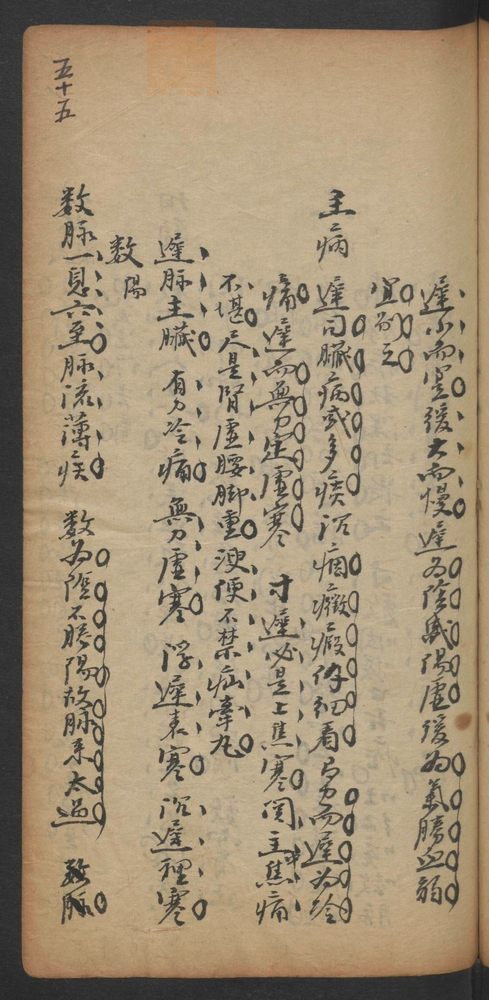 遲小而寔緩大而慢遲為陰盛陽虛緩為氣勝血弱
宜別之
主病 遲司臟病或多痰沉痼癥瘕仔細看有力而遲為冷
痛遲而無力定虛寒 寸遲必是上焦寒関主中焦痛
不堪尺是腎虛腰脚重溲便不禁疝牽丸
遲脉主臟 有力冷痛 無力虛寒 浮遲表寒 沉遲裡寒
數 陽
數脉一息六至脉流薄疾 數為陰不勝陽故脉來太過 數脉
五十五